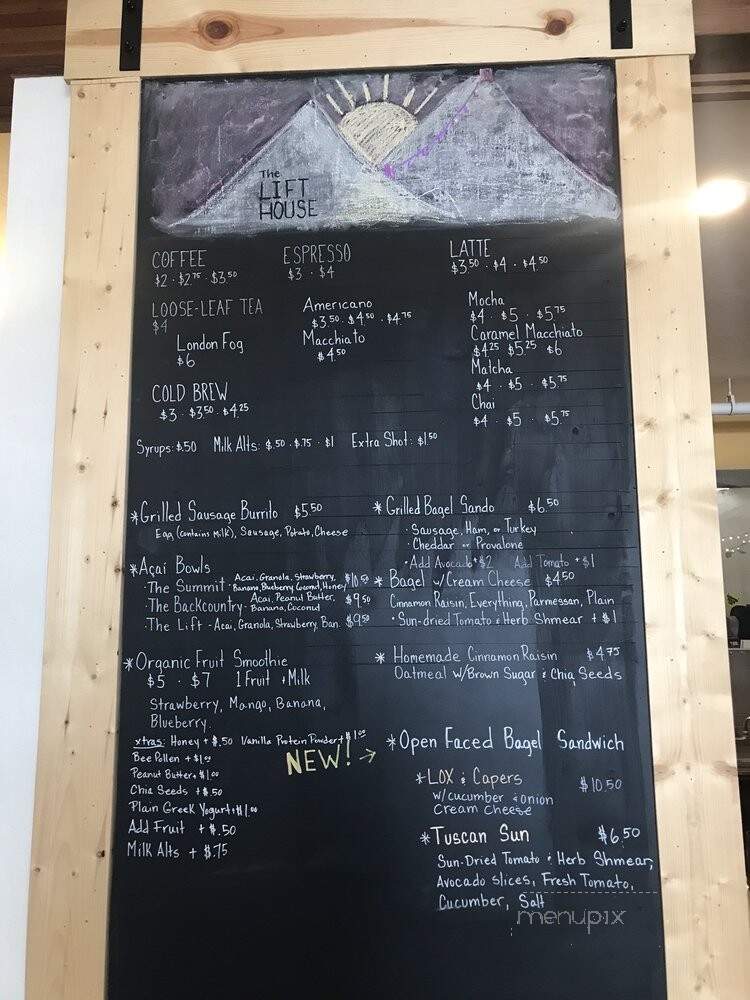 The
LIFT
HOUSE
COFFEE
$2 · $2.75 · $3.50
ESPRESSO
$3 · $4
LATTE
$3.50 · $4 · $4.50
LOOSE-LEAF TEA
$4
London Fog
$6
Americano
$3.50 · $4.50 · $4.75
Macchiato
$4.50
Mocha
$4 · $5 · $5.75
Caramel Macchiato
$4.25 $5.25 $6
Matcha
$4 · $5 · $5.75
Chai
$4 · $5 · $5.75
COLD BREW
$3 · $3.50 · $4.25
Syrups: $.50 Milk Alts: $.50 · $.75 · $1 Extra Shot: $1.50
*Grilled Sausage Burrito $5.50
Egg (contains milk), Sausage, Potato, Cheese
*Açai Bowls
·The Summit - Acai, Granola, Strawberry, $10.50
Banana, Blueberry Coconut, Honey
·The Backcountry - Acai, Peanut Butter, $9.50
Banana, Coconut
·The Lift - Acai, Granola, Strawberry, Ban. $9.50
*Organic Fruit Smoothie
$5 · $7 1 Fruit + Milk
Strawberry, Mango, Banana,
Blueberry.
xtras: Honey + $.50 Vanilla Protein Powder + $1.00
Bee Pollen + $1.00
Peanut Butter + $1.00
Chia Seeds + $.50
Plain Greek Yogurt + $1.00
Add Fruit + $.50
Milk Alts + $.75
*Grilled Bagel Sando $6.50
·Sausage, Ham, or Turkey
·Cheddar or Provalone
·Add Avocado + $2 Add Tomato + $1
*Bagel w/Cream Cheese $4.50
Cinnamon Raisin, Everything, Parmesan, Plain
·Sun-dried Tomato & Herb Shmear + $1
*Homemade Cinnamon Raisin $4.75
Oatmeal w/Brown Sugar & Chia Seeds
NEW! →
*Open Faced Bagel Sandwich
*LOX & Capers $10.50
w/cucumber & onion
Cream Cheese
*Tuscan Sun $6.50
Sun-Dried Tomato & Herb Shmear,
Avocado slices, Fresh Tomato,
Cucumber, Salt
menupix